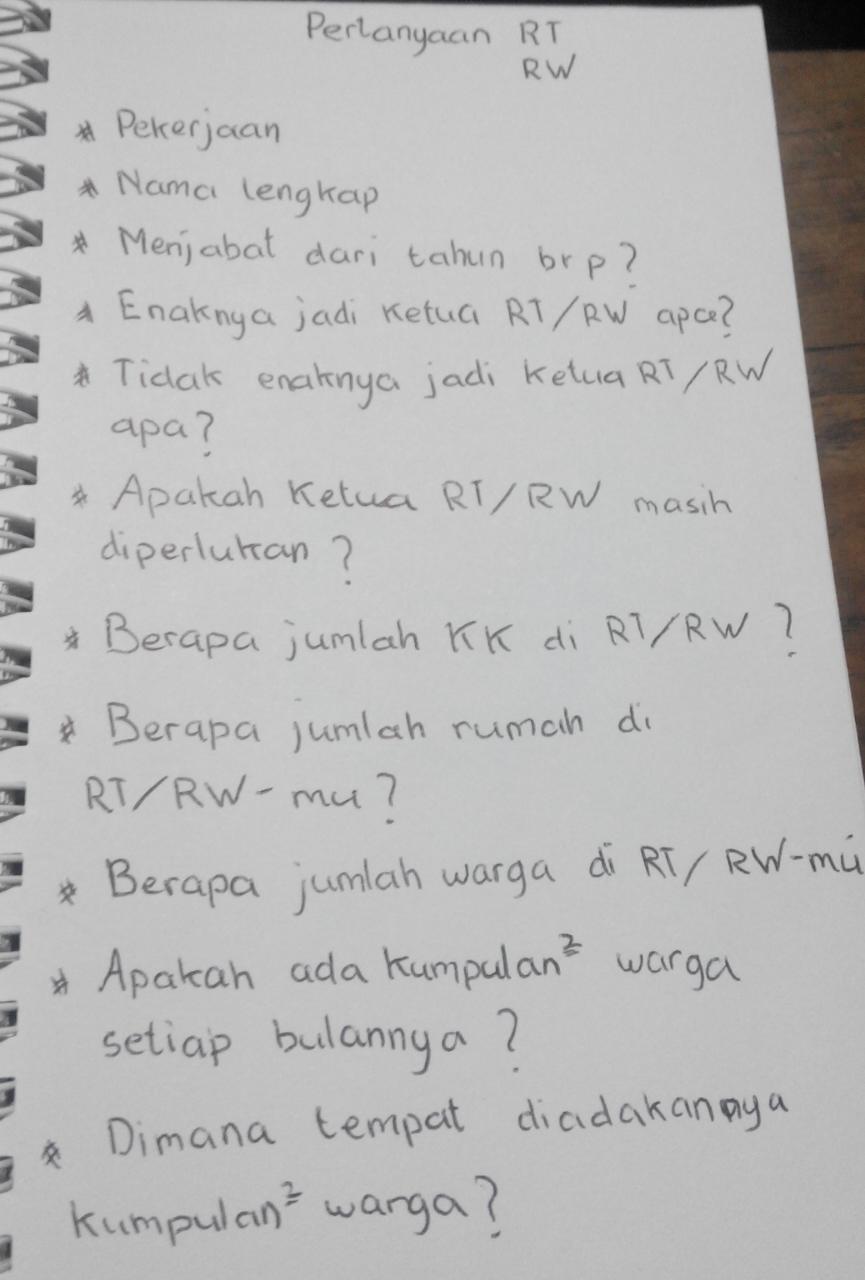 Pertanyaan RT
RW
* Pekerjaan
* Nama lengkap
* Menjabat dari tahun brp?
* Enaknya jadi Ketua RT/RW apa?
* Tidak enaknya jadi Ketua RT/RW
apa?
* Apakah Ketua RT/RW masih
diperlukan?
* Berapa jumlah KK di RT/RW?
* Berapa jumlah rumah di
RT/RW-mu?
* Berapa jumlah warga di RT/RW-mu
* Apakah ada kumpulan² warga
setiap bulannya?
* Dimana tempat diadakannya
kumpulan² warga?